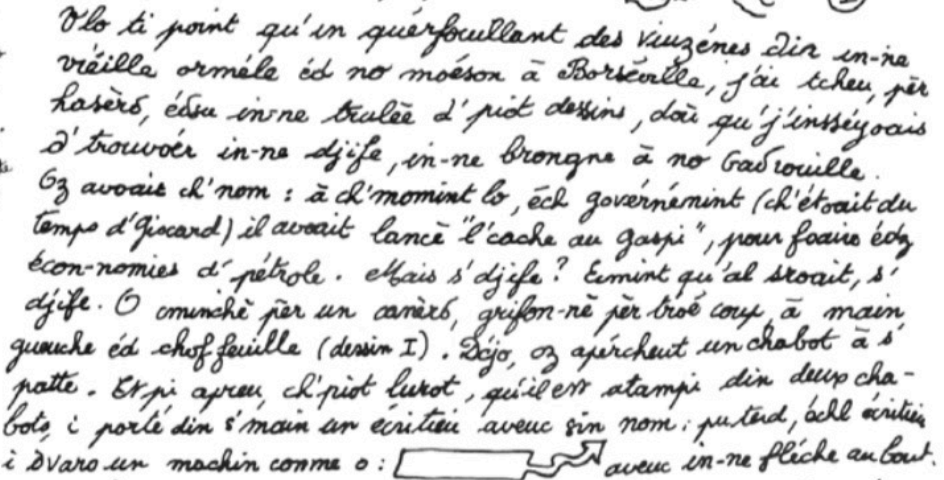 Vlo ti point qu'in quérfouillant des viuzénes din in-ne
viéille orméle éd no moéson à Borséville, j'ai tcheu, pèr
hasèrd, édsu in-ne trulée d'piot dessins, doù qu'j'insséyoais
d'trouvoér in-ne djife, in-ne brongne à no Gadrouille.
Oz avoait ch'nom : à ch'momint lo, éch govérnémint (ch'étoait du
temps d'Giscard) il avoait lancè "l'cache au gaspi", pour foaire édz
écon-nomies d'pétrole. Mais s'djife ? Eimint qu'al sroait, s'
djife. O cminchè pèr un canèrd, grifon-nè pèr troé coup, à main
gueuche éd chof feuille (dessin I). Déjo, oz apércheut un chabot à s'
patte. Et pi apreu, ch'piot lurot, qu'il est atampi din deux cha-
bots, i porte din s'main un écritieu aveuc sin nom ; pu terd, achl écritieu
i dvaro un machin comme o : aveuc in-ne fléche au bout.